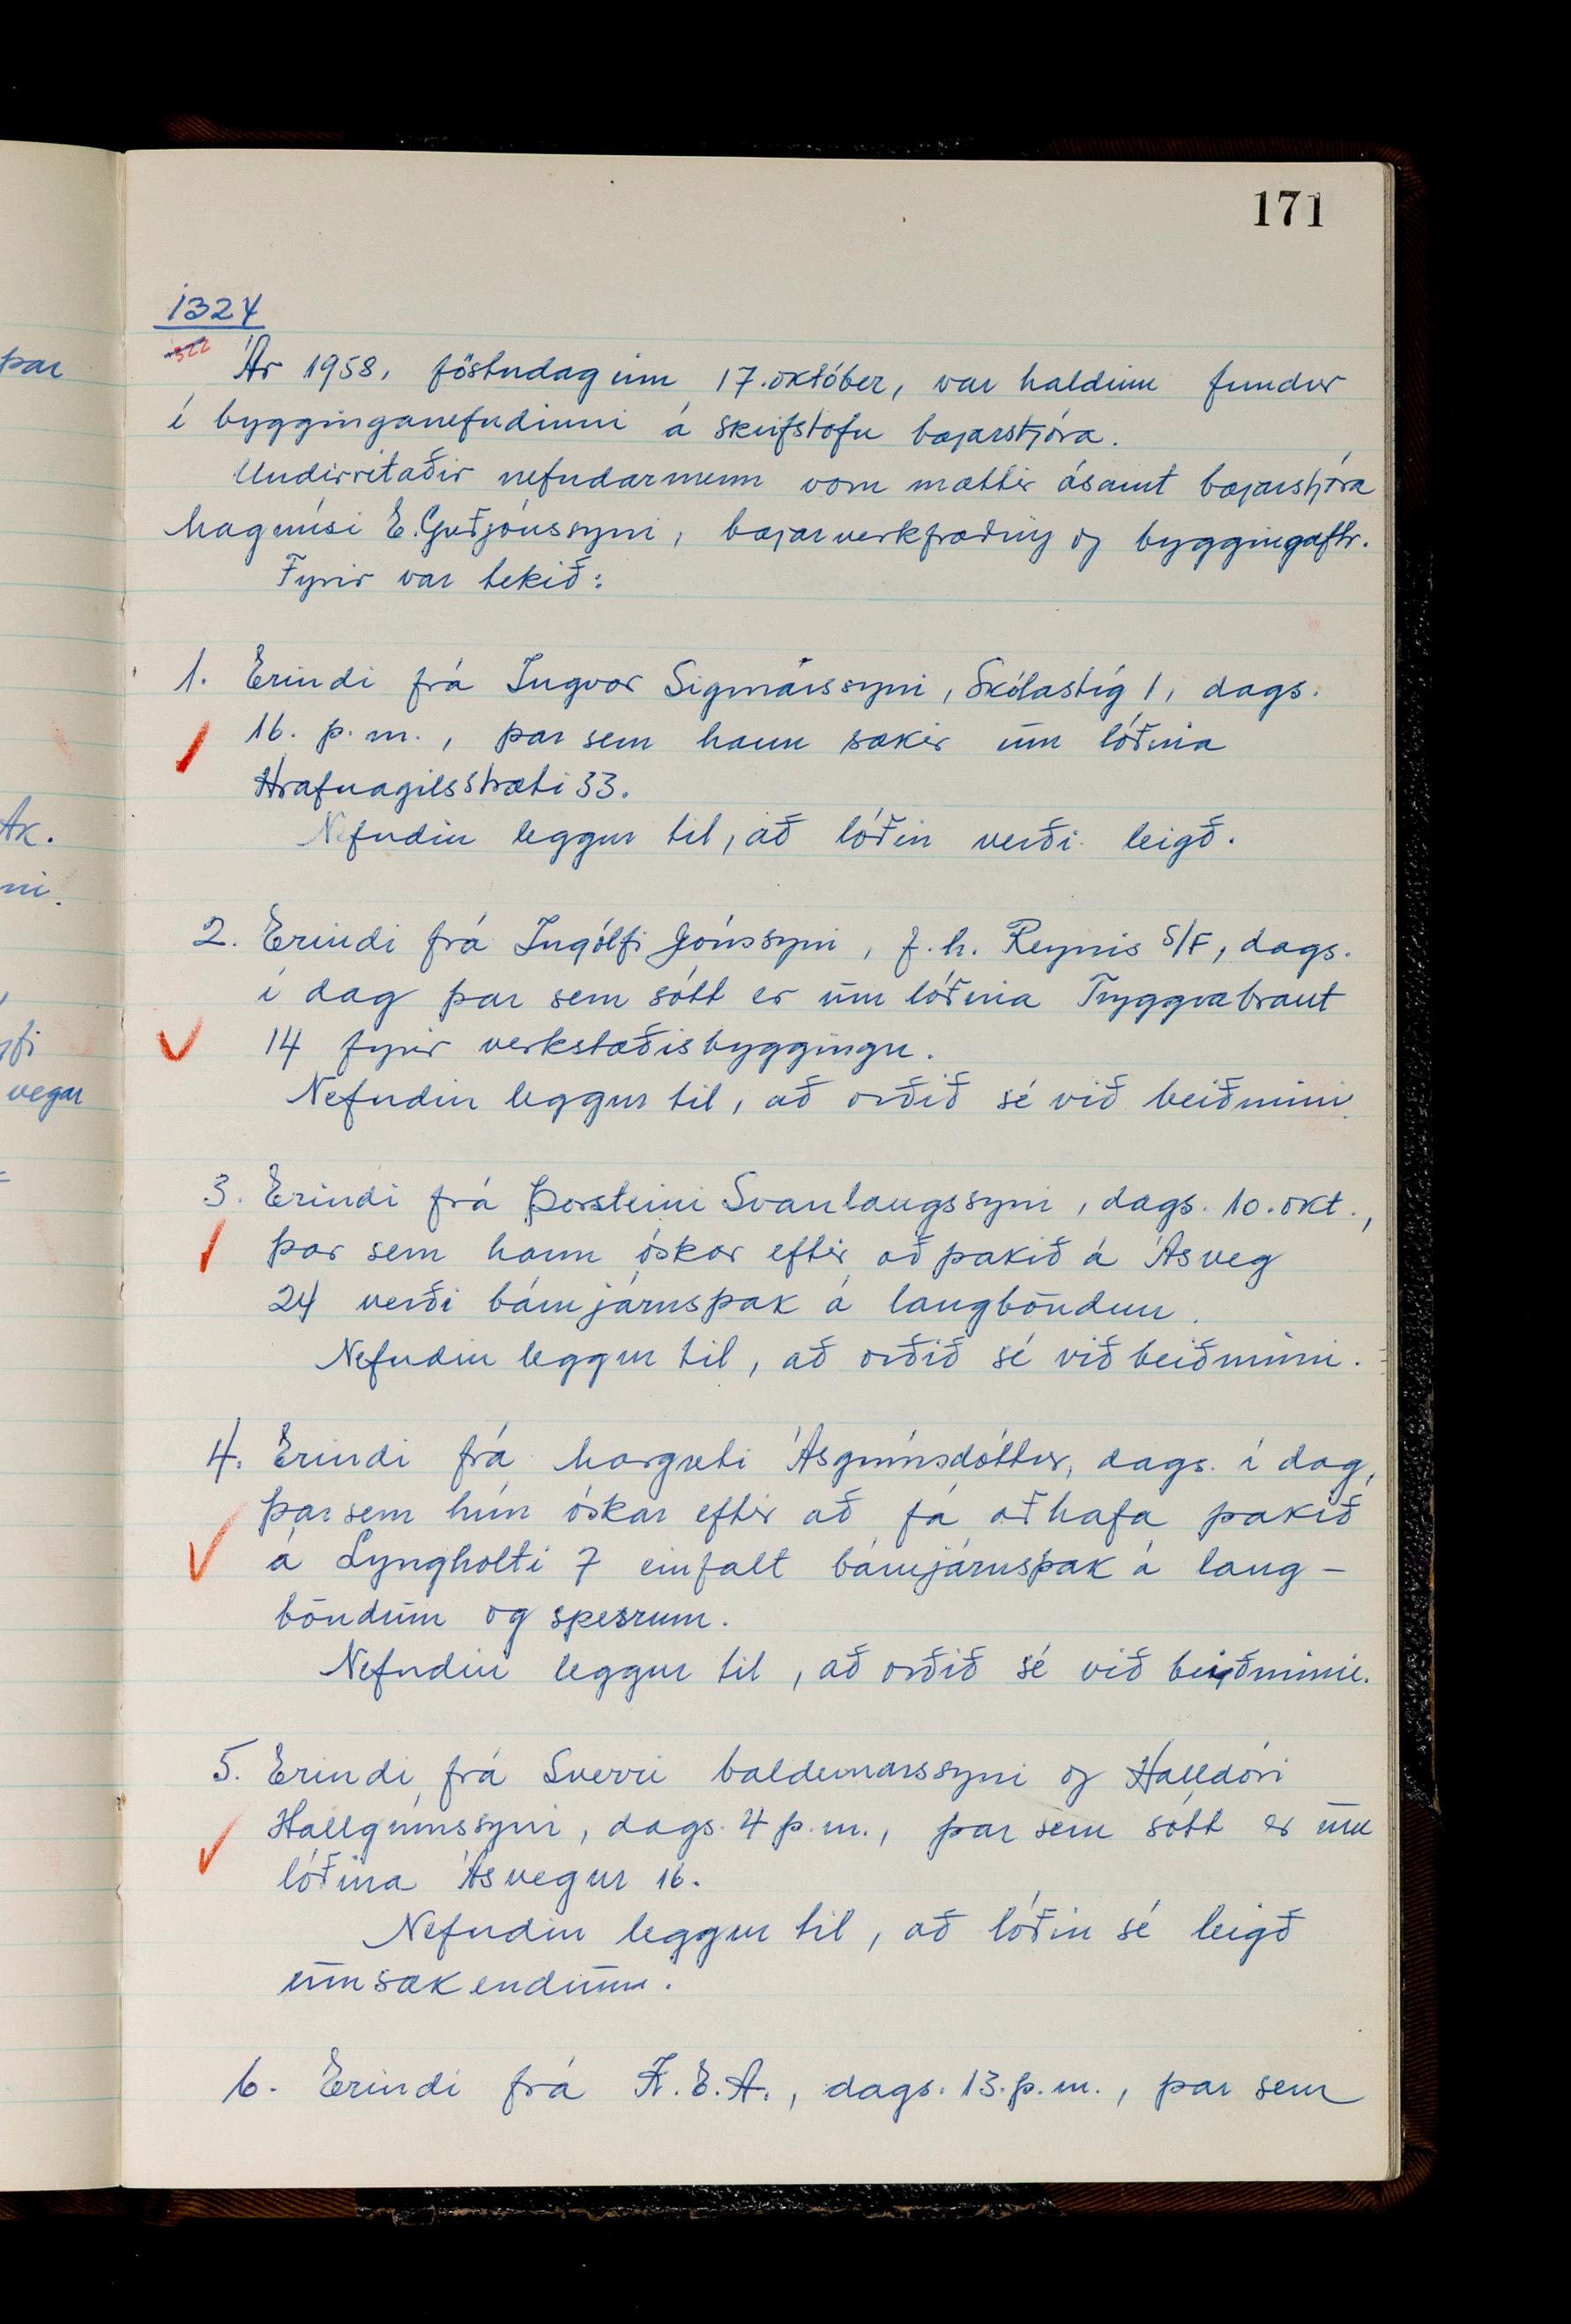 171
þar
Ak.
ni.
vegar
1324
1322
Ár 1958, föstudaginn 17. október, var haldinn fundur
í bygginganefndinni á skrifstofu bæjarstjóra.
Undirritaðir nefndarmenn voru mættir ásamt bæjarstjóra
Magnúsi E. Guðjónssyni, bæjarverkfræðing og byggingaftr.
Fyrir var tekið:
1. Erindi frá Ingvar Sigmarssyni, Skólastíg 1, dags.
16. þ.m., þar sem hann sækir um lóðina
Hrafnagilsstræti 33.
Nefndin leggur til, að lóðin verði leigð.
2. Erindi frá Ingólfi Jónssyni, f.h. Reynis S/F, dags.
í dag þar sem sótt er um lóðina Tryggvabraut
14 fyrir verkstæðisbyggingu.
Nefndin leggur til, að orðið sé við beiðninni.
3. Erindi frá Þorsteini Svanlaugssyni, dags. 10. okt.,
þar sem hann óskar eftir að þakið á Ásveg
24 verði bárujárnsþak á langböndum.
Nefndin leggur til, að orðið sé við beiðninni.
4. Erindi frá Margréti Ásgrímsdóttur, dags. í dag,
þar sem hún óskar eftir að fá að hafa þakið
á Lyngholti 7 einfalt bárujárnsþak á lang-
böndum og sperrum.
Nefndin leggur til, að orðið sé við beiðninni.
5. Erindi frá Sverri Valdemarssyni og Halldóri
Hallgrímssyni, dags. 4 þ.m., þar sem sótt er um
lóðina Ásvegur 16.
Nefndin leggur til, að lóðin sé leigð
umsækendum.
6. Erindi frá K.E.A., dags. 13. þ.m., þar sem